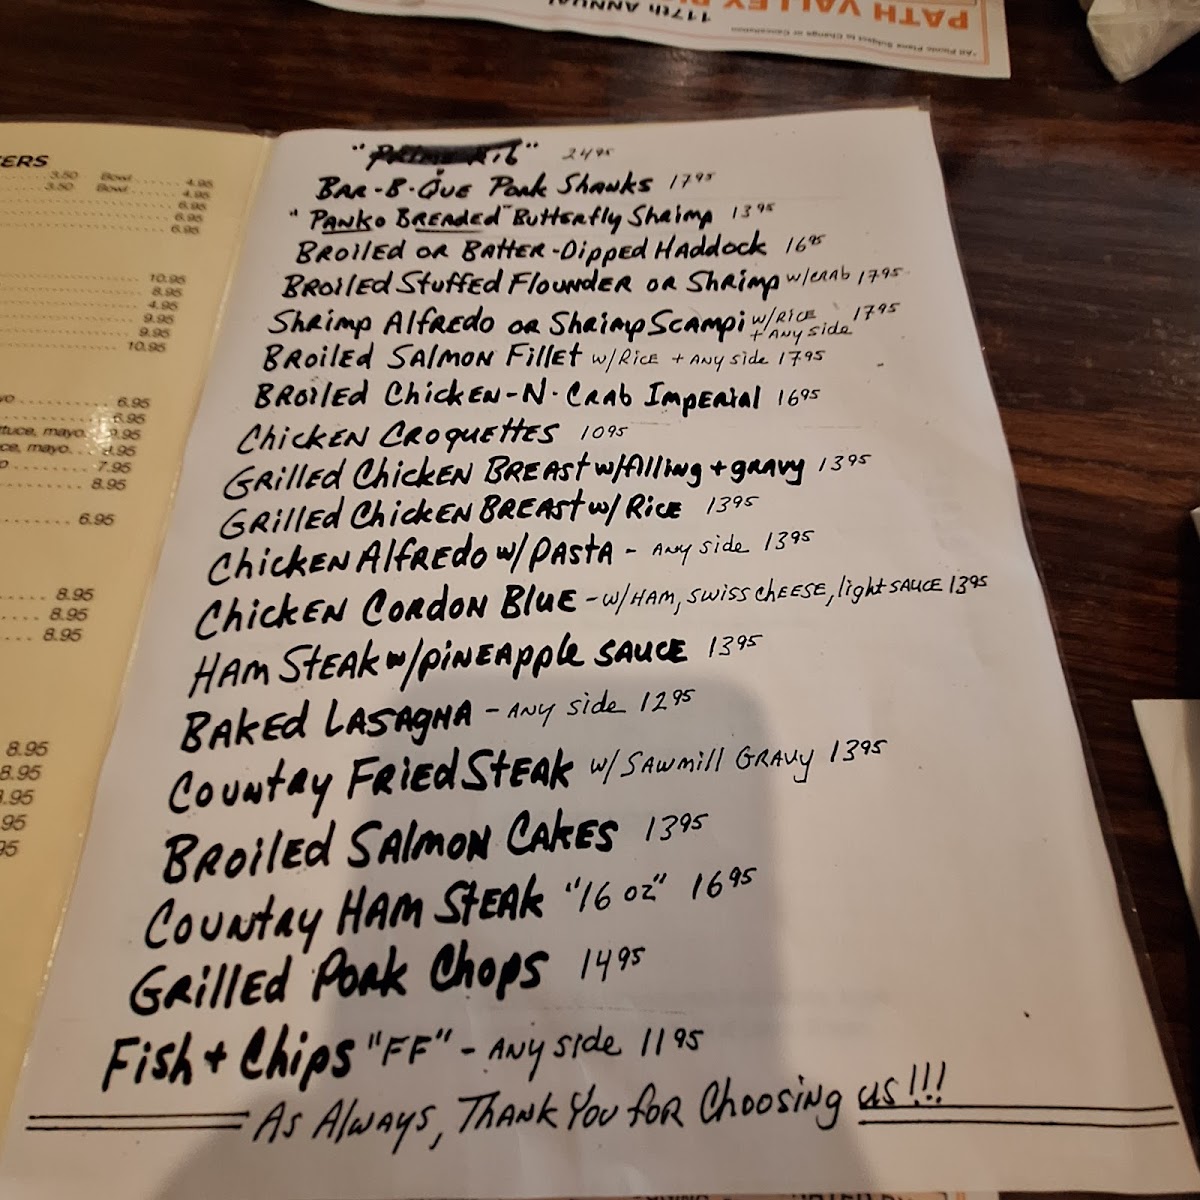 117th ANNUAL
PATH VALLEY
*All Picnic Plans Subject to Change or Cancellation
ERS
3.50 Bowl ...... 4.95
3.50 Bowl ...... 4.95
6.95
6.95
6.95
10.95
8.95
4.95
9.95
9.95
10.95
6.95
6.95
ttuce, mayo. 9.95
ce, mayo. . . 8.95
7.95
8.95
6.95
8.95
8.95
8.95
8.95
8.95
.95
.95
95
"Prime Rib" 24 95
BAR-B-QUE Pork Shanks 17 95
"PANKO BREADED" Butterfly Shrimp 13 95
BROILED OR BATTER-Dipped HADDOCK 16 95
BROILED Stuffed FLOUNDER OR Shrimp w/CRAB 17.95
Shrimp Alfredo OR Shrimp Scampi w/RICE + ANY side 17 95
BROILED SALMON Fillet w/RICE + ANY side 17 95
BROILED CHICKEN-N-CRAB IMPERIAL 16 95
CHICKEN CROQUETTES 10 95
GRILLED CHICKEN BREAST w/filling + gravy 13 95
GRILLED CHICKEN BREAST w/ RICE 13 95
CHICKEN Alfredo w/PASTA - ANY side 13 95
CHICKEN CORDON BLUE - w/HAM, SWISS CHEESE, light SAUCE 13 95
HAM STEAK w/PINEApple SAUCE 13 95
BAKED LASAGNA - ANY side 12 95
COUNTRY FRIED STEAK w/ SAWMILL GRAVY 13 95
BROILED SALMON CAKES 13 95
COUNTRY HAM STEAK "16 oz" 16 95
GRILLED PORK Chops 14 95
Fish + Chips "FF" - ANY side 11 95
AS ALWAYS, THANK YOU FOR Choosing us!!!